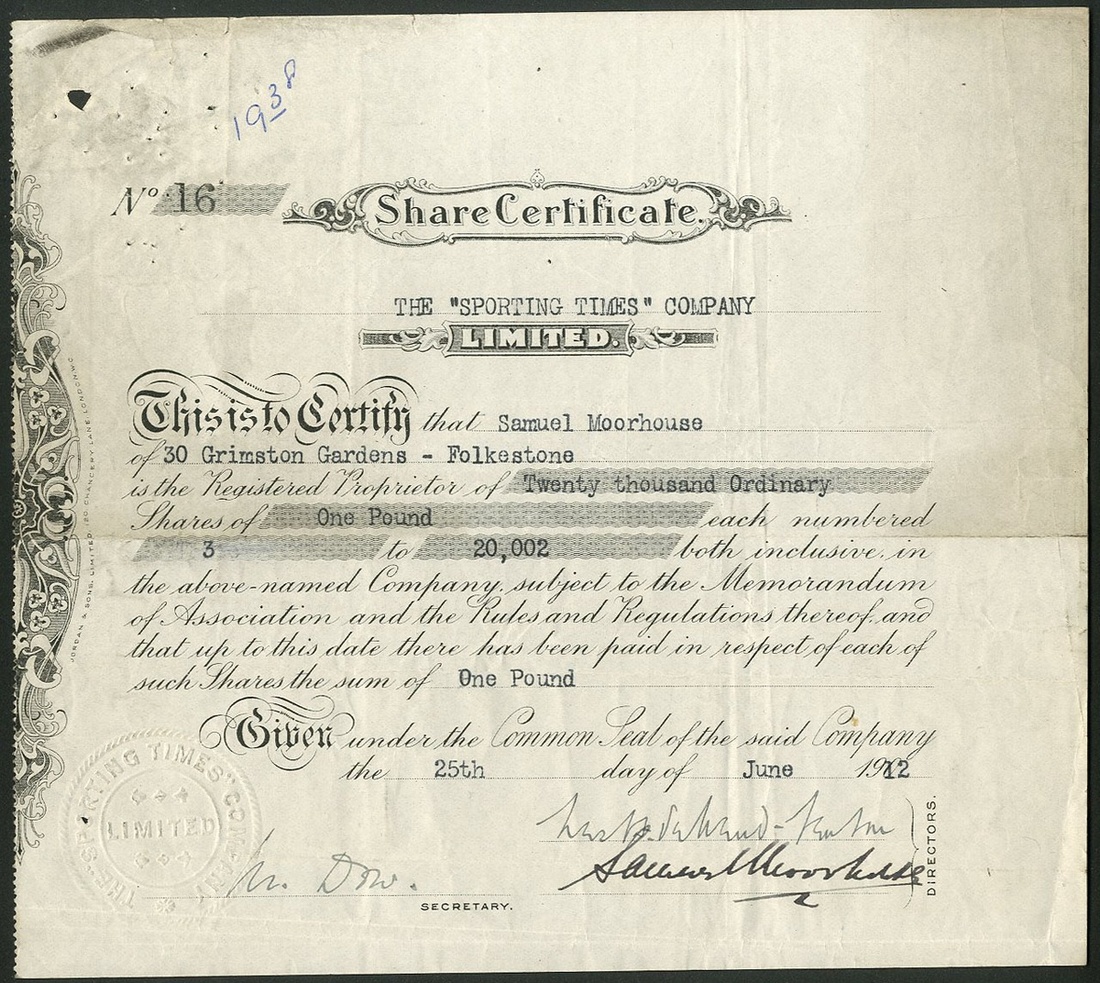 1938
No 16
Share Certificate.
THE "SPORTING TIMES" COMPANY
LIMITED.
This is to Certify that Samuel Moorhouse
of 30 Grimston Gardens - Folkestone
is the Registered Proprietor of Twenty thousand Ordinary
Shares of One Pound each numbered
3 to 20,002 both inclusive, in
the above-named Company, subject to the Memorandum
of Association and the Rules and Regulations thereof, and
that up to this date there has been paid in respect of each of
such Shares the sum of One Pound
Given under the Common Seal of the said Company
the 25th day of June 1912
Samuel Moorhouse
DIRECTORS.
Dow.
SECRETARY.
THE "SPORTING TIMES" COMPANY
LIMITED
JORDAN & SONS, LIMITED, 120 CHANCERY LANE, LONDON, W.C.